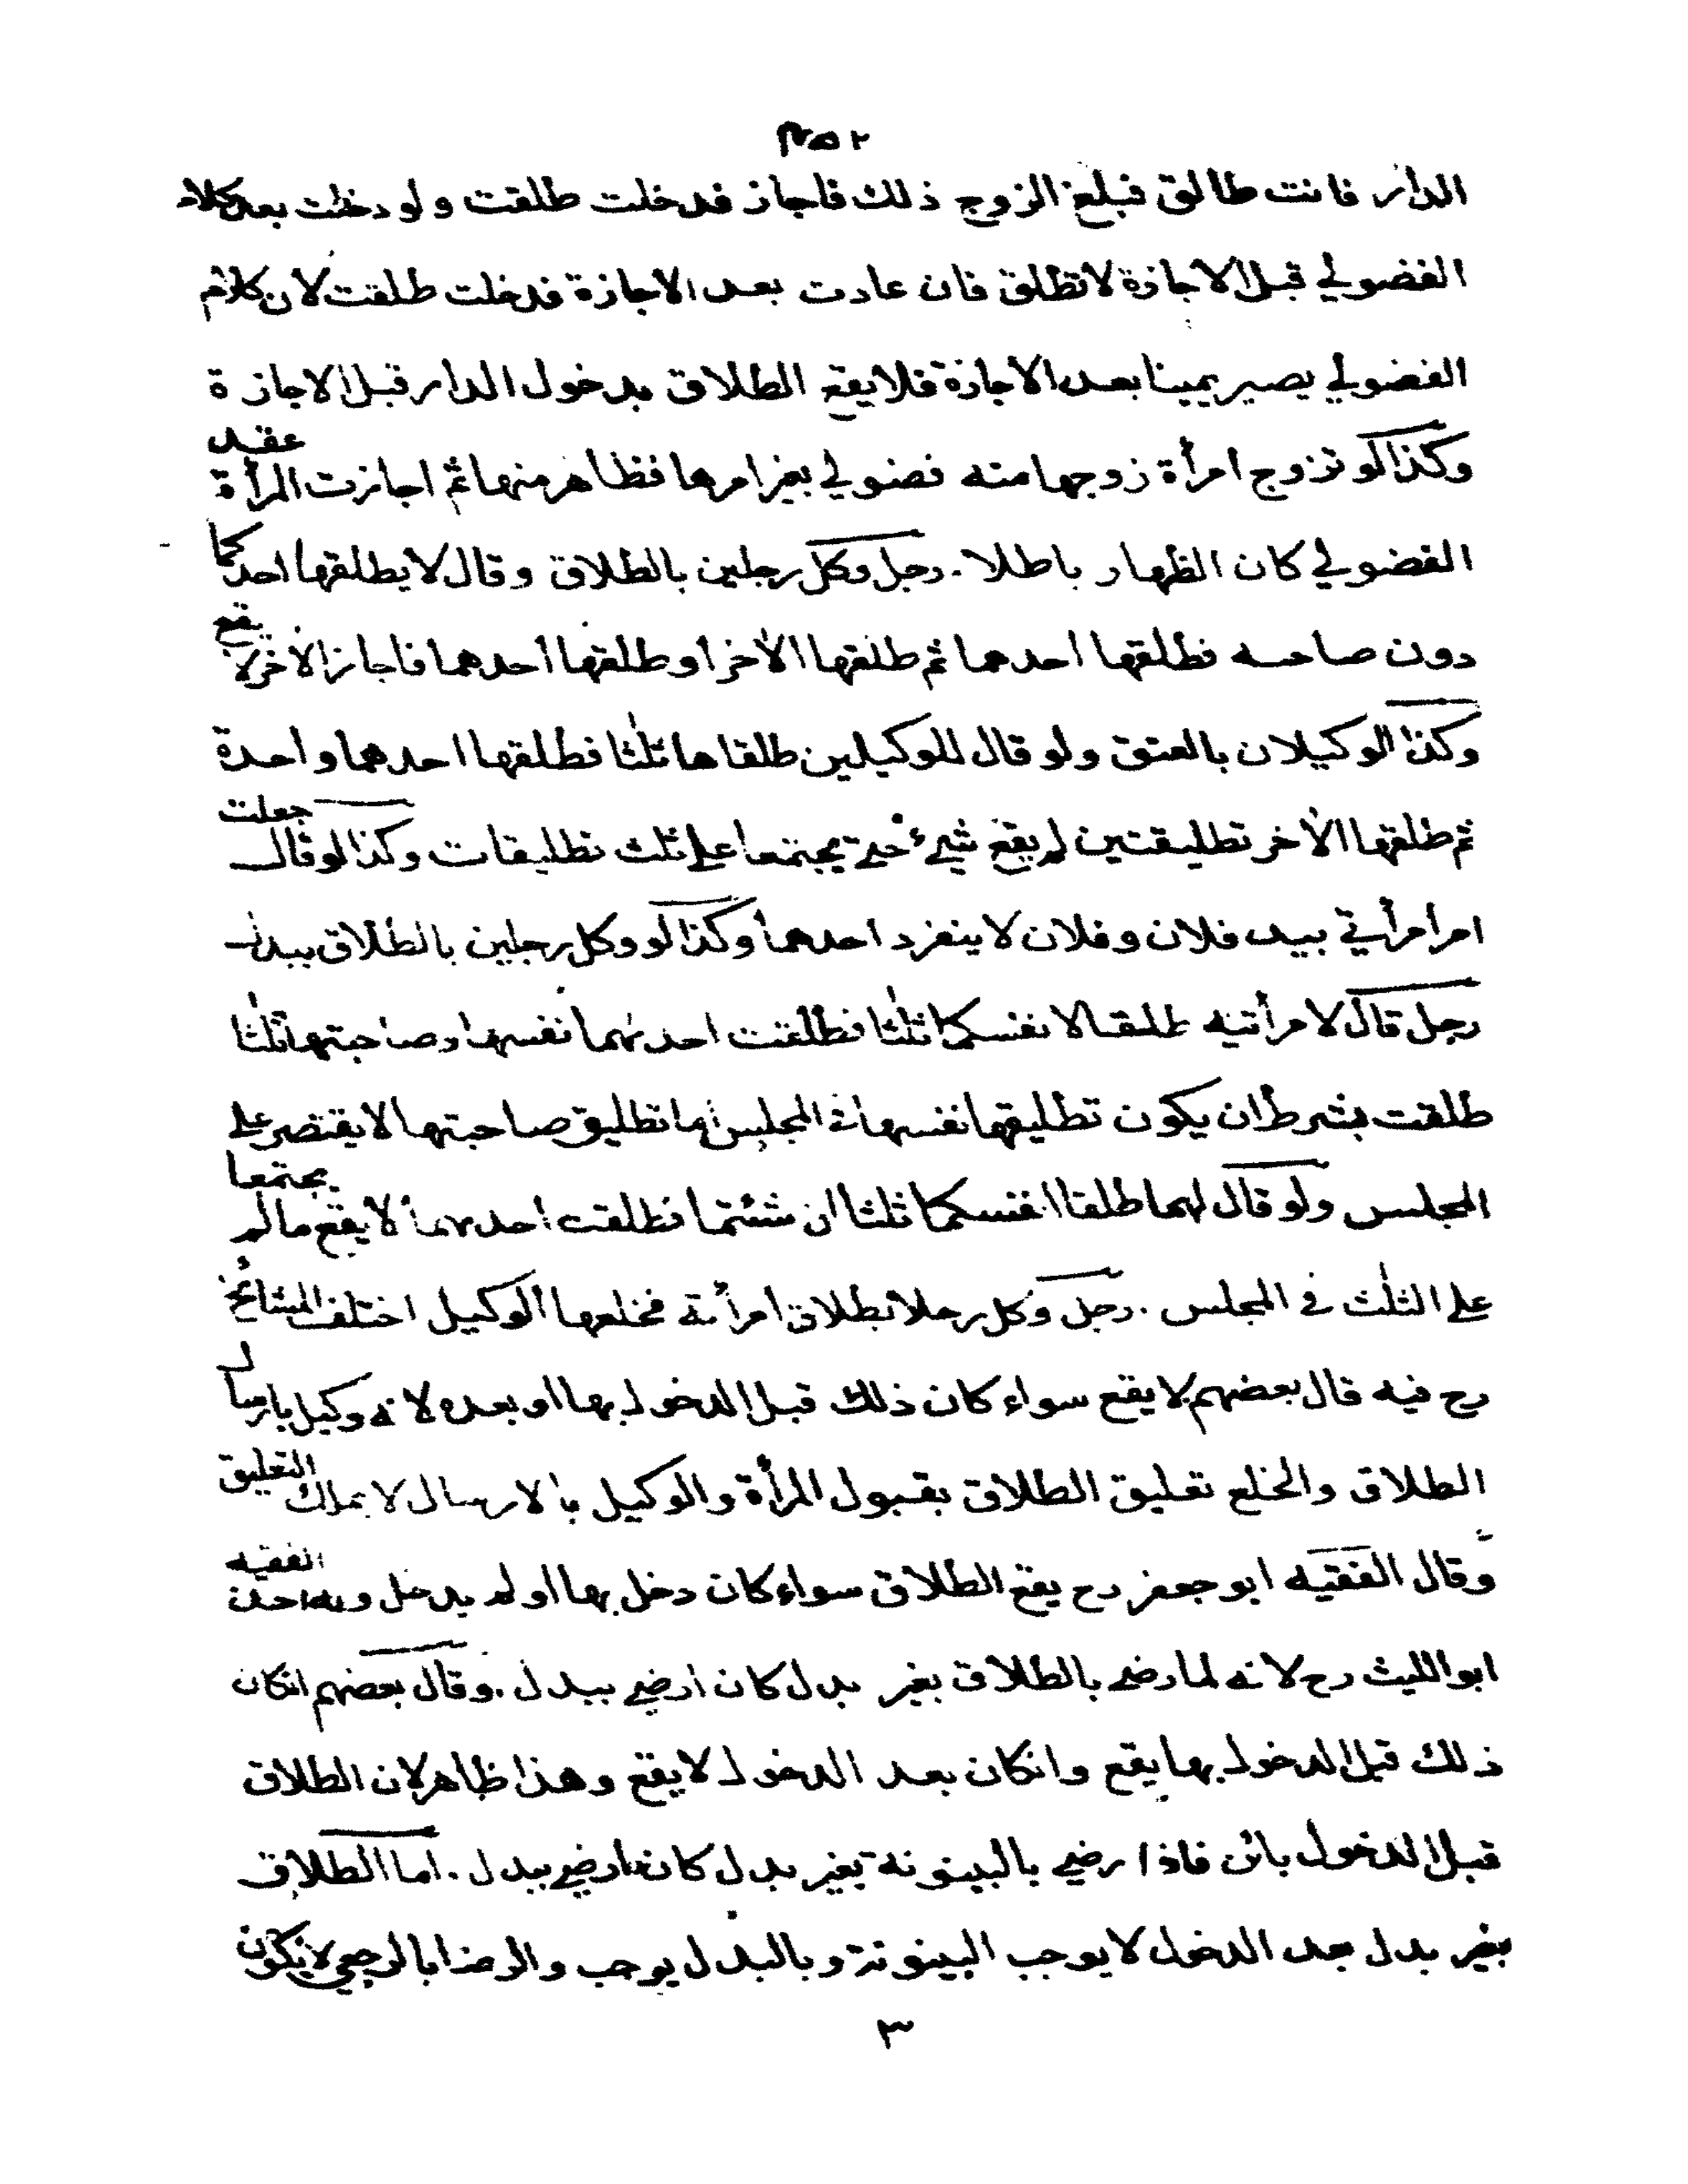 ٢٥٣
الدار فانت طالق فبلغ الزوج ذلك فاجاز فدخلت طلقت ولو دخلت بعد كلام
الفضولي قبل الاجازة لا تطلق فان عادت بعد الاجازة فدخلت طلقت لان كلام
الفضولي يصير يمينا بعد الاجازة فلا يقع الطلاق بدخول الدار قبل الاجازة
وكذا لو تزوج امرأة زوجها منه فضولي بغير امرها فظاهر منها ثم اجازت المرأة عقد
الفضولي كان الظهار باطلا . رجل وكل رجلين بالطلاق وقال لا يطلقها احدكما
دون صاحبه فطلقها احدهما ثم طلقها الآخر او طلقها احدهما فاجاز الآخر لا يقع
وكذا الوكيلان بالعتق ولو قال للوكيلين طلقاها ثلثا فطلقها احدهما واحدة
ثم طلقها الآخر تطليقتين لم يقع شيء حتى يجتمعا على ثلث تطليقات وكذا لو قال جعلت
امر امرأتي بيد فلان وفلان لا ينفرد احدهما وكذا لو وكل رجلين بالطلاق ببدل
رجل قال لامرأتيه طلقا انفسكما ثلثا فطلقت احدىهما نفسها وصاحبتها ثلثا
طلقت بشرط ان يكون تطليقها نفسها في المجلس اما تطليق صاحبتها لا يقتصر على
المجلس ولو قال لهما طلقا انفسكما ثلثا ان شئتما فطلقت احدىهما لا يقع ما لم يجتمعا
على الثلث في المجلس . رجل وكل رجلا بطلاق امرأته فخلعها الوكيل اختلف المشائخ
رح فيه قال بعضهم لا يقع سواء كان ذلك قبل الدخول بها او بعده لانه وكيل بارسال
الطلاق والخلع تعليق الطلاق بقبول المرأة والوكيل بالارسال لا يملك التعليق
وقال الفقيه ابو جعفر رح يقع الطلاق سواء كان دخل بها او لم يدخل وبه اخذ الفقيه
ابو الليث رح لانه لما رضي بالطلاق بغير بدل كان ارضى ببدل . وقال بعضهم انكان
ذلك قبل الدخول بها يقع وانكان بعد الدخول لا يقع وهذا ظاهر لان الطلاق
قبل الدخول بائن فاذا رضي بالبينونة بغير بدل كان ارضى ببدل . اما الطلاق
بغير بدل بعد الدخول لا يوجب البينونة وبالبدل يوجب والرضا بالرجعي لا يكون
٣